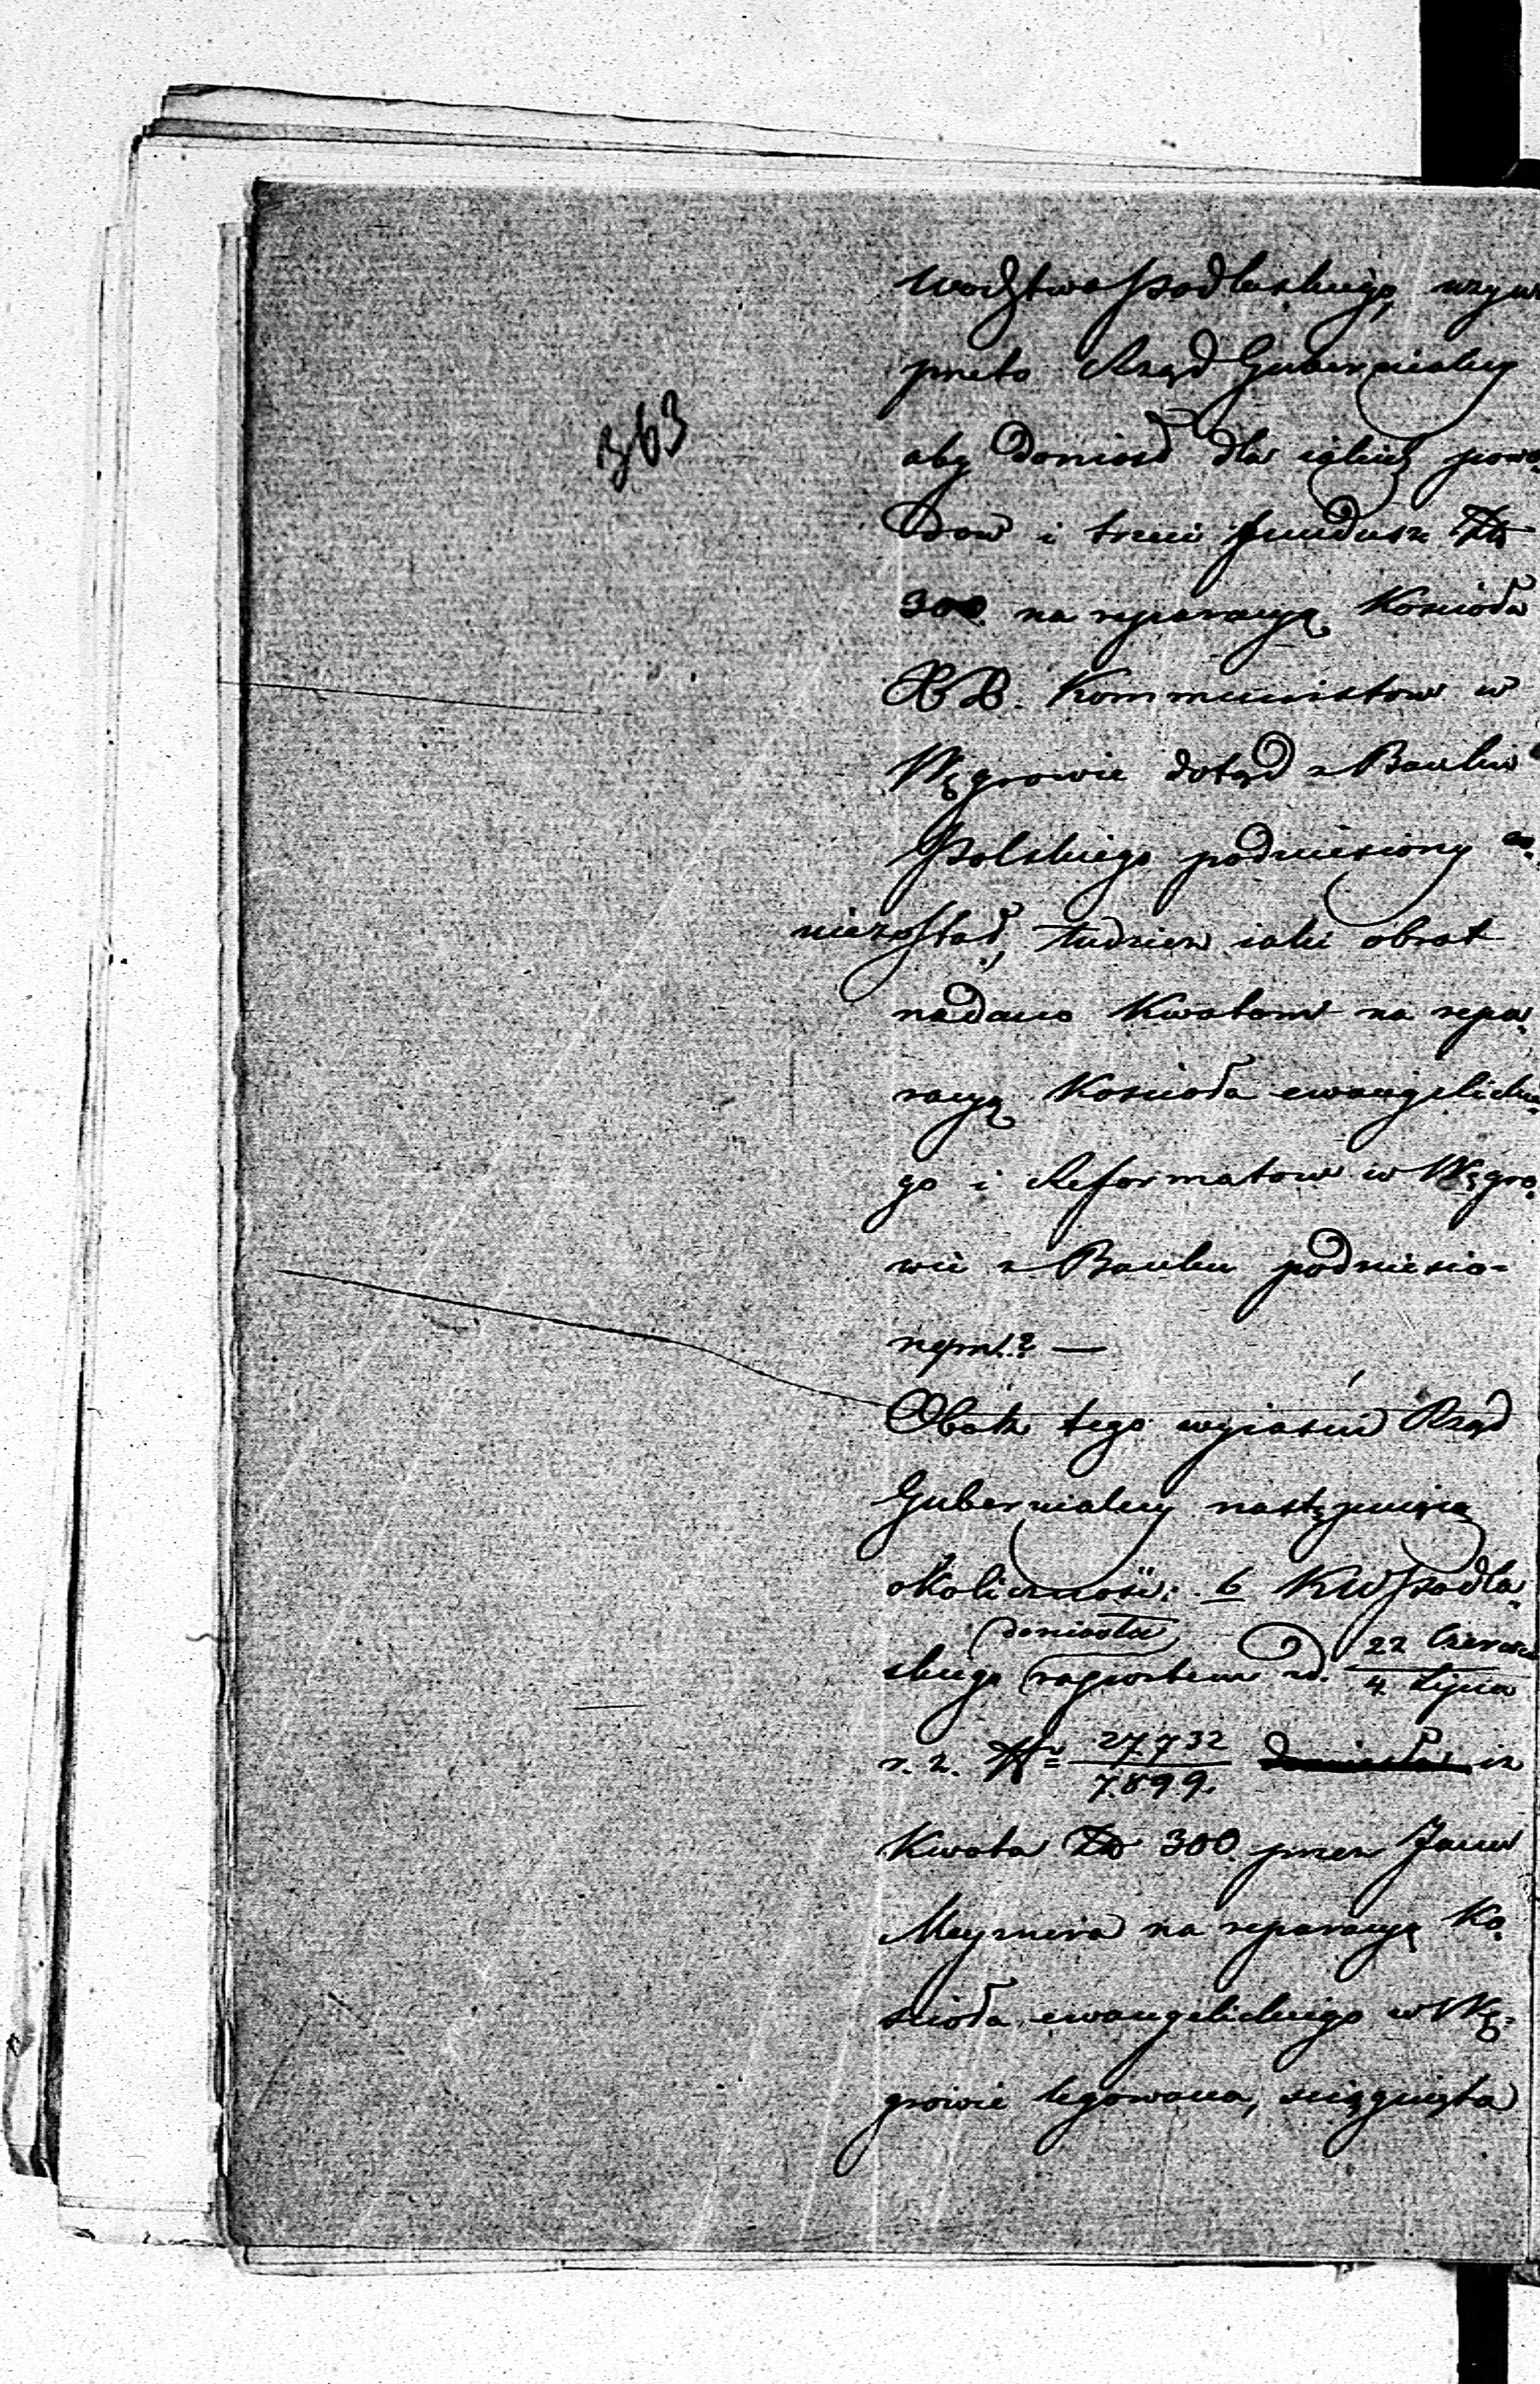 wodztwa Podlaskiego, wzyw
przeto Rząd Gubernialny
363
aby doniosł dla iakich powo
dow i trzeci fundusz Złp
300 na reparacyą Kościoła
XX. Kommunistow w
Węgrowie dotąd z Banku
Polskiego podniesiony
niezostał, tudzież iaki obrot
nadano Kwotom na repa„
racyą Kościoła ewangelickie
go i Reformatow w Węgro„
wie z Banku podniesio-
nym? —
Obok tego wyiaśni Rząd
Gubernialny następuiącą
okoliczność: b KW Podla„
doniosła
skiego raportem z d. 22 Czerwca / 4 Lipca
r. z. Nr 27732 / 7899. doniosła iż
Kwota Złp 300 przez Jana
na reparacyą Ko„
ścioła ewangelickiego w Wę-
growie legowana, ściągnięta